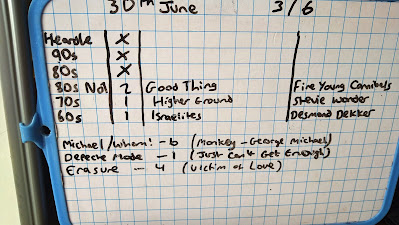 30th June 3/6
Heardle X
90s X
80s X
80s No1 2 Good Thing Fine Young Cannibals
70s 1 Higher Ground Stevie Wonder
60s 1 Israelites Desmond Dekker
Michael/Wham! - 6 (Monkey - George Michael)
Depeche Mode - 1 (Just Can't Get Enough)
Erasure - 4 (Victim of Love)